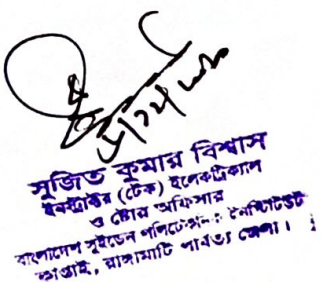 সুজিত কুমার বিশ্বাস
ইনস্ট্রাক্টর (টেক) ইলেকট্রিক্যাল
ও ষ্টোর অফিসার
বাংলাদেশ সুইডেন পলিটেকনিক ইনষ্টিটিউট
কাপ্তাই, রাঙ্গামাটি পার্বত্য জেলা।